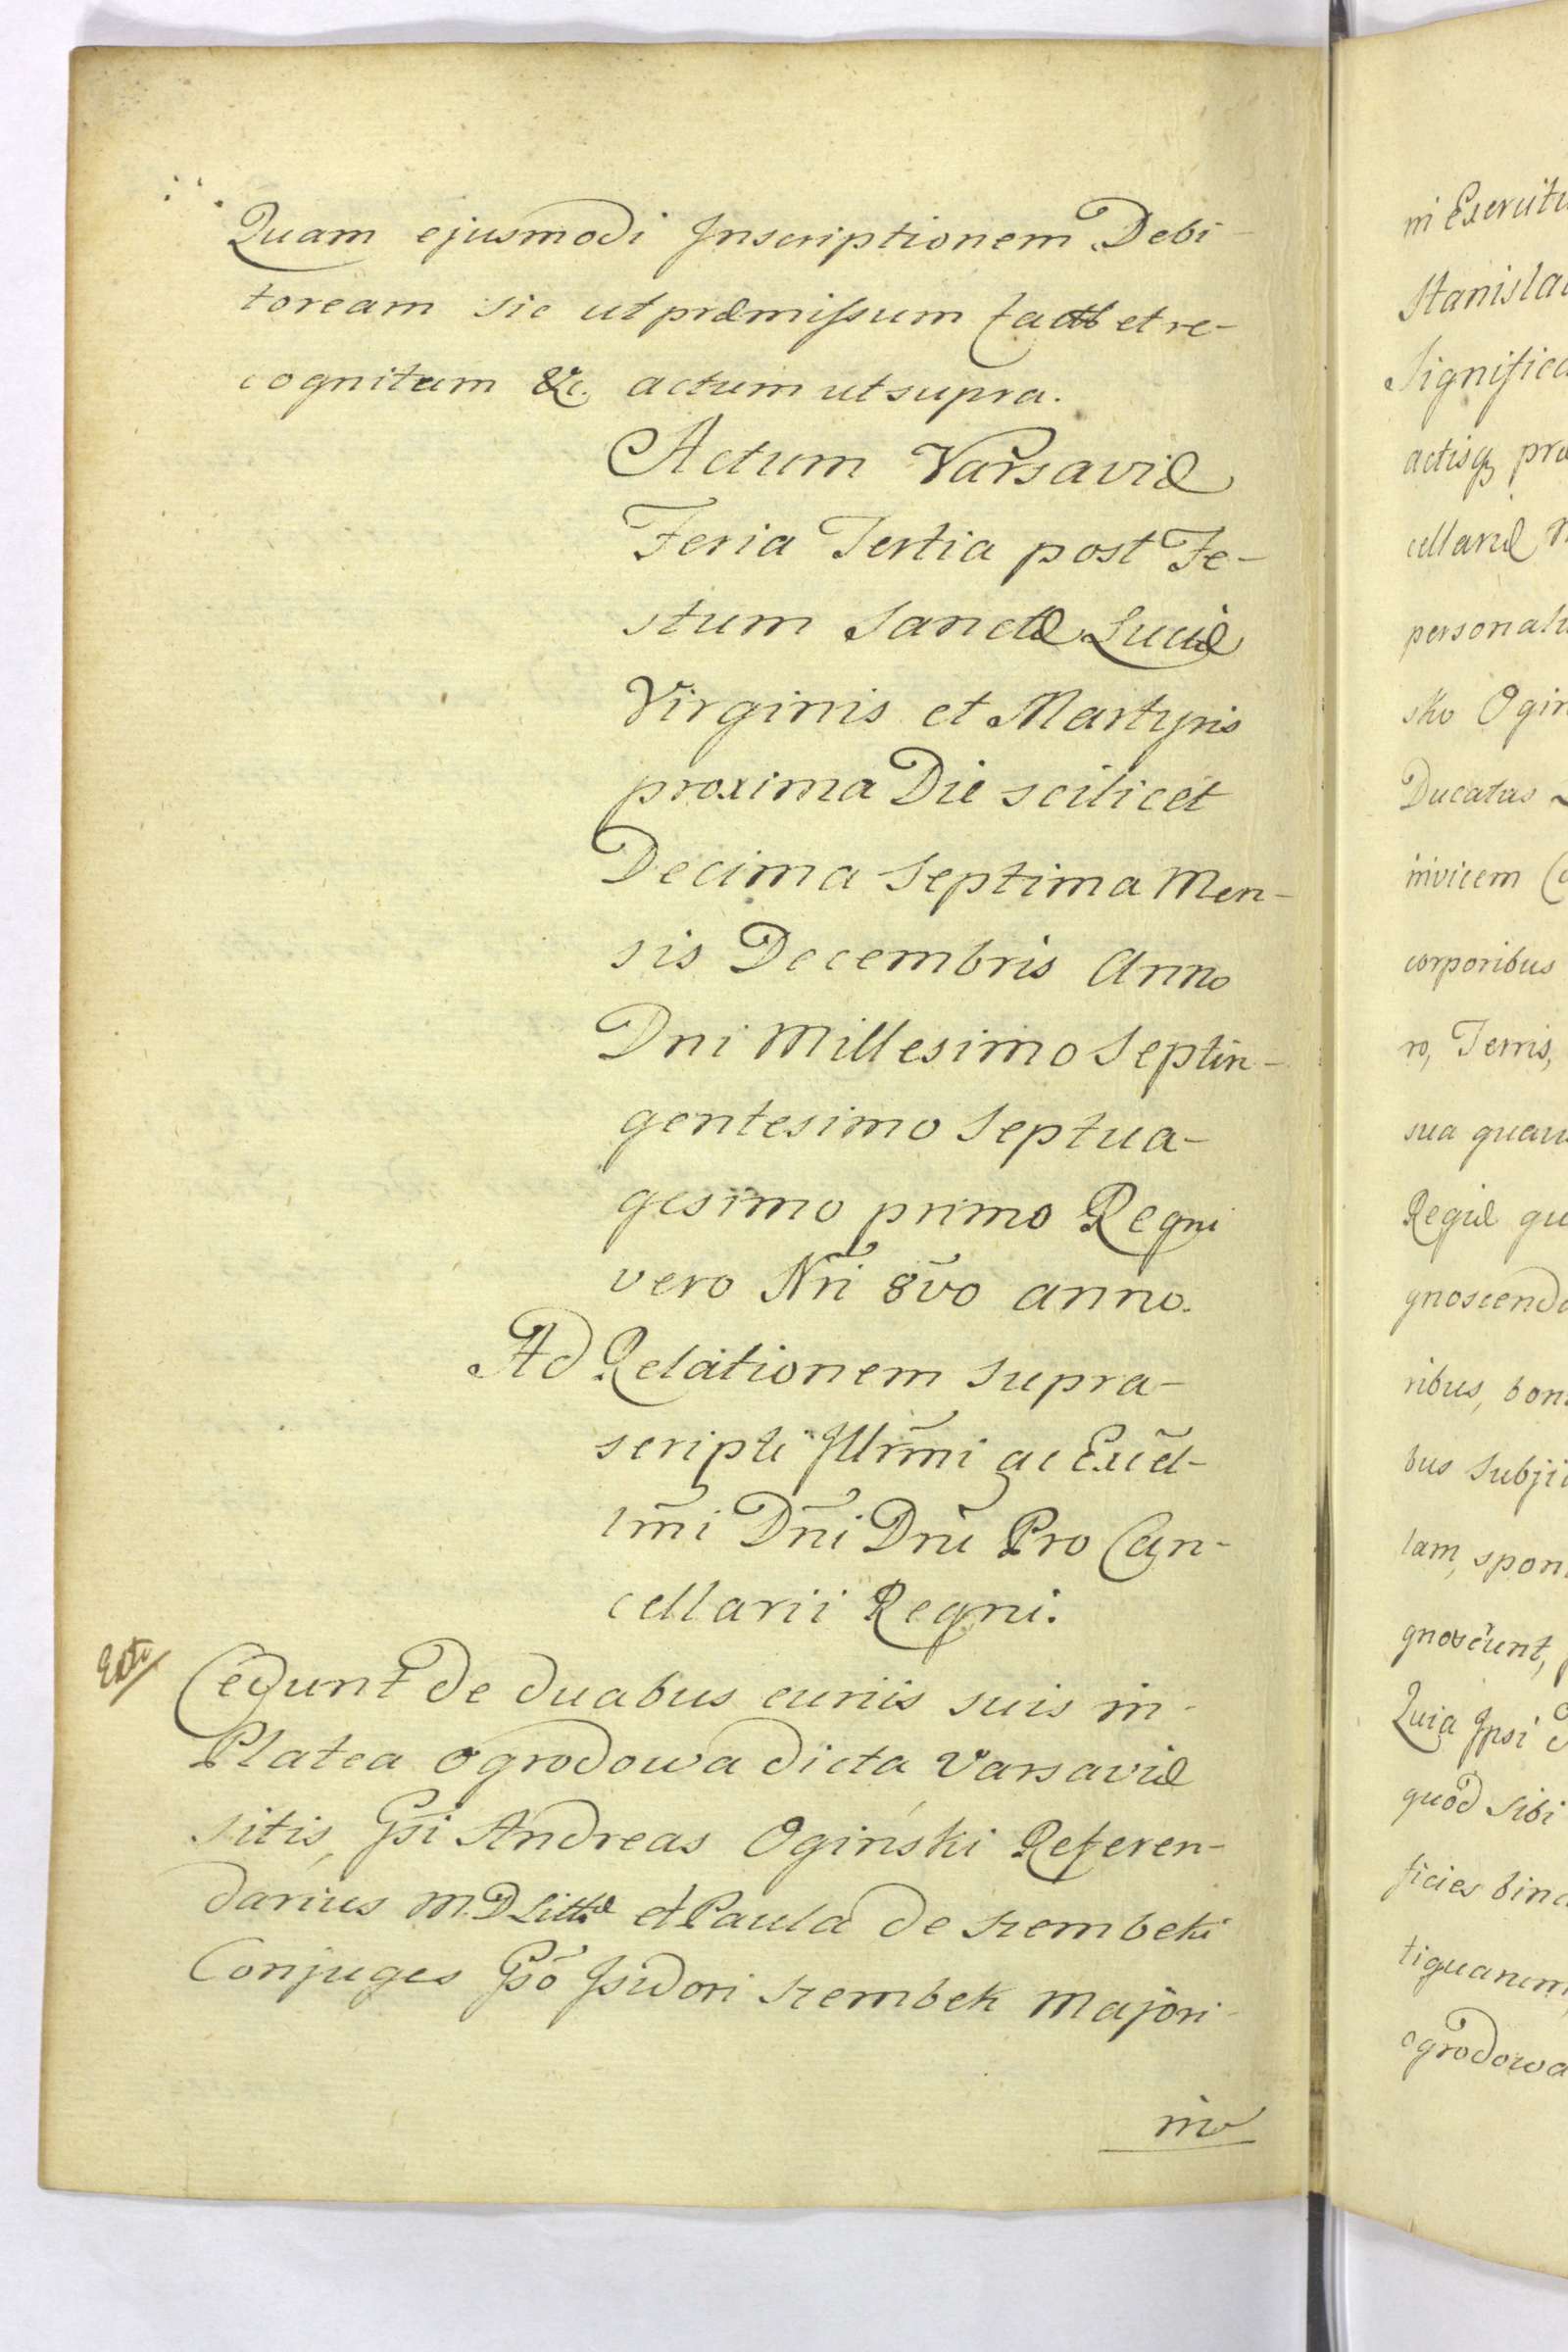 Quam ejusmodi Inscriptionem Debi-
toream sic ut præmissum et re-
cognitam &c. actum ut supra.
Actum Varsaviæ
Feria Tertia post Fe-
stum Sanctæ Luciæ
Virginis et Martyris
proxima Die scilicet
Decima Septima Men-
sis Decembris Anno
Dni Millesimo Septin-
gentesimo Septua-
gesimo primo Regni
vero Nrī 8vō anno.
Ad Relationem supra-
scripti Illrm̄i ac Excel-
lm̄i Dn̄i Dn̄i Pro Can-
cellarii Regni.
Cedunt de duabus curiis suis in
Platea ogrodowa dicta Varsaviæ
sitis, Gsi Andreas Ogiński Referen-
darius M. D. Litthæ et Paula de Szembeki
Conjuges Gsō Isidori Szembek Majori
ni Exercitu
Stanisla
Significa
actisq præ
cellariæ
personali
sko Ogin
Ducatus
invicem
corporibus
ro, Terris,
sua quau
Regiæ qu
gnoscend
ribus, bon
bus subjic
lam, spon
gnoscunt,
Quia Ipsi
quod sibi
ficies bin
tiguanim
ogrodowa